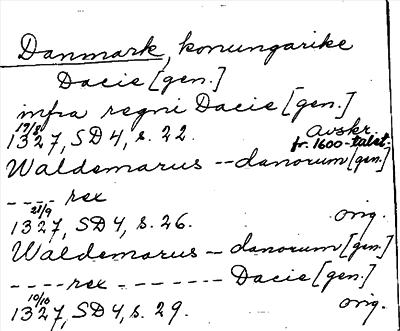 Danmark, konungarike
Dacie [gen.]
infra regni Dacie [gen.]
19/8
1327, SD 4, s. 22. avskr. fr. 1600-talet.
Waldemarus -- danorum [gen.]
---- rex
21/9
1327, SD 4, s. 26. orig.
Waldemarus -- danorum [gen.]
---- rex -------- Dacie [gen.]
10/10
1327, SD 4, s. 29. orig.